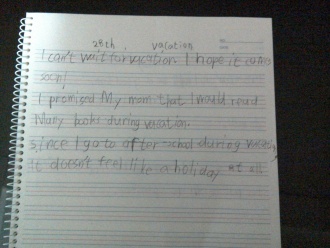 28th, vacation
I can't wait for vacation. I hope it comes
soon!
I promised My mom that I would read
Many books during vacation.
since I go to after-school during vacation,
it doesn't feel like a holiday at all